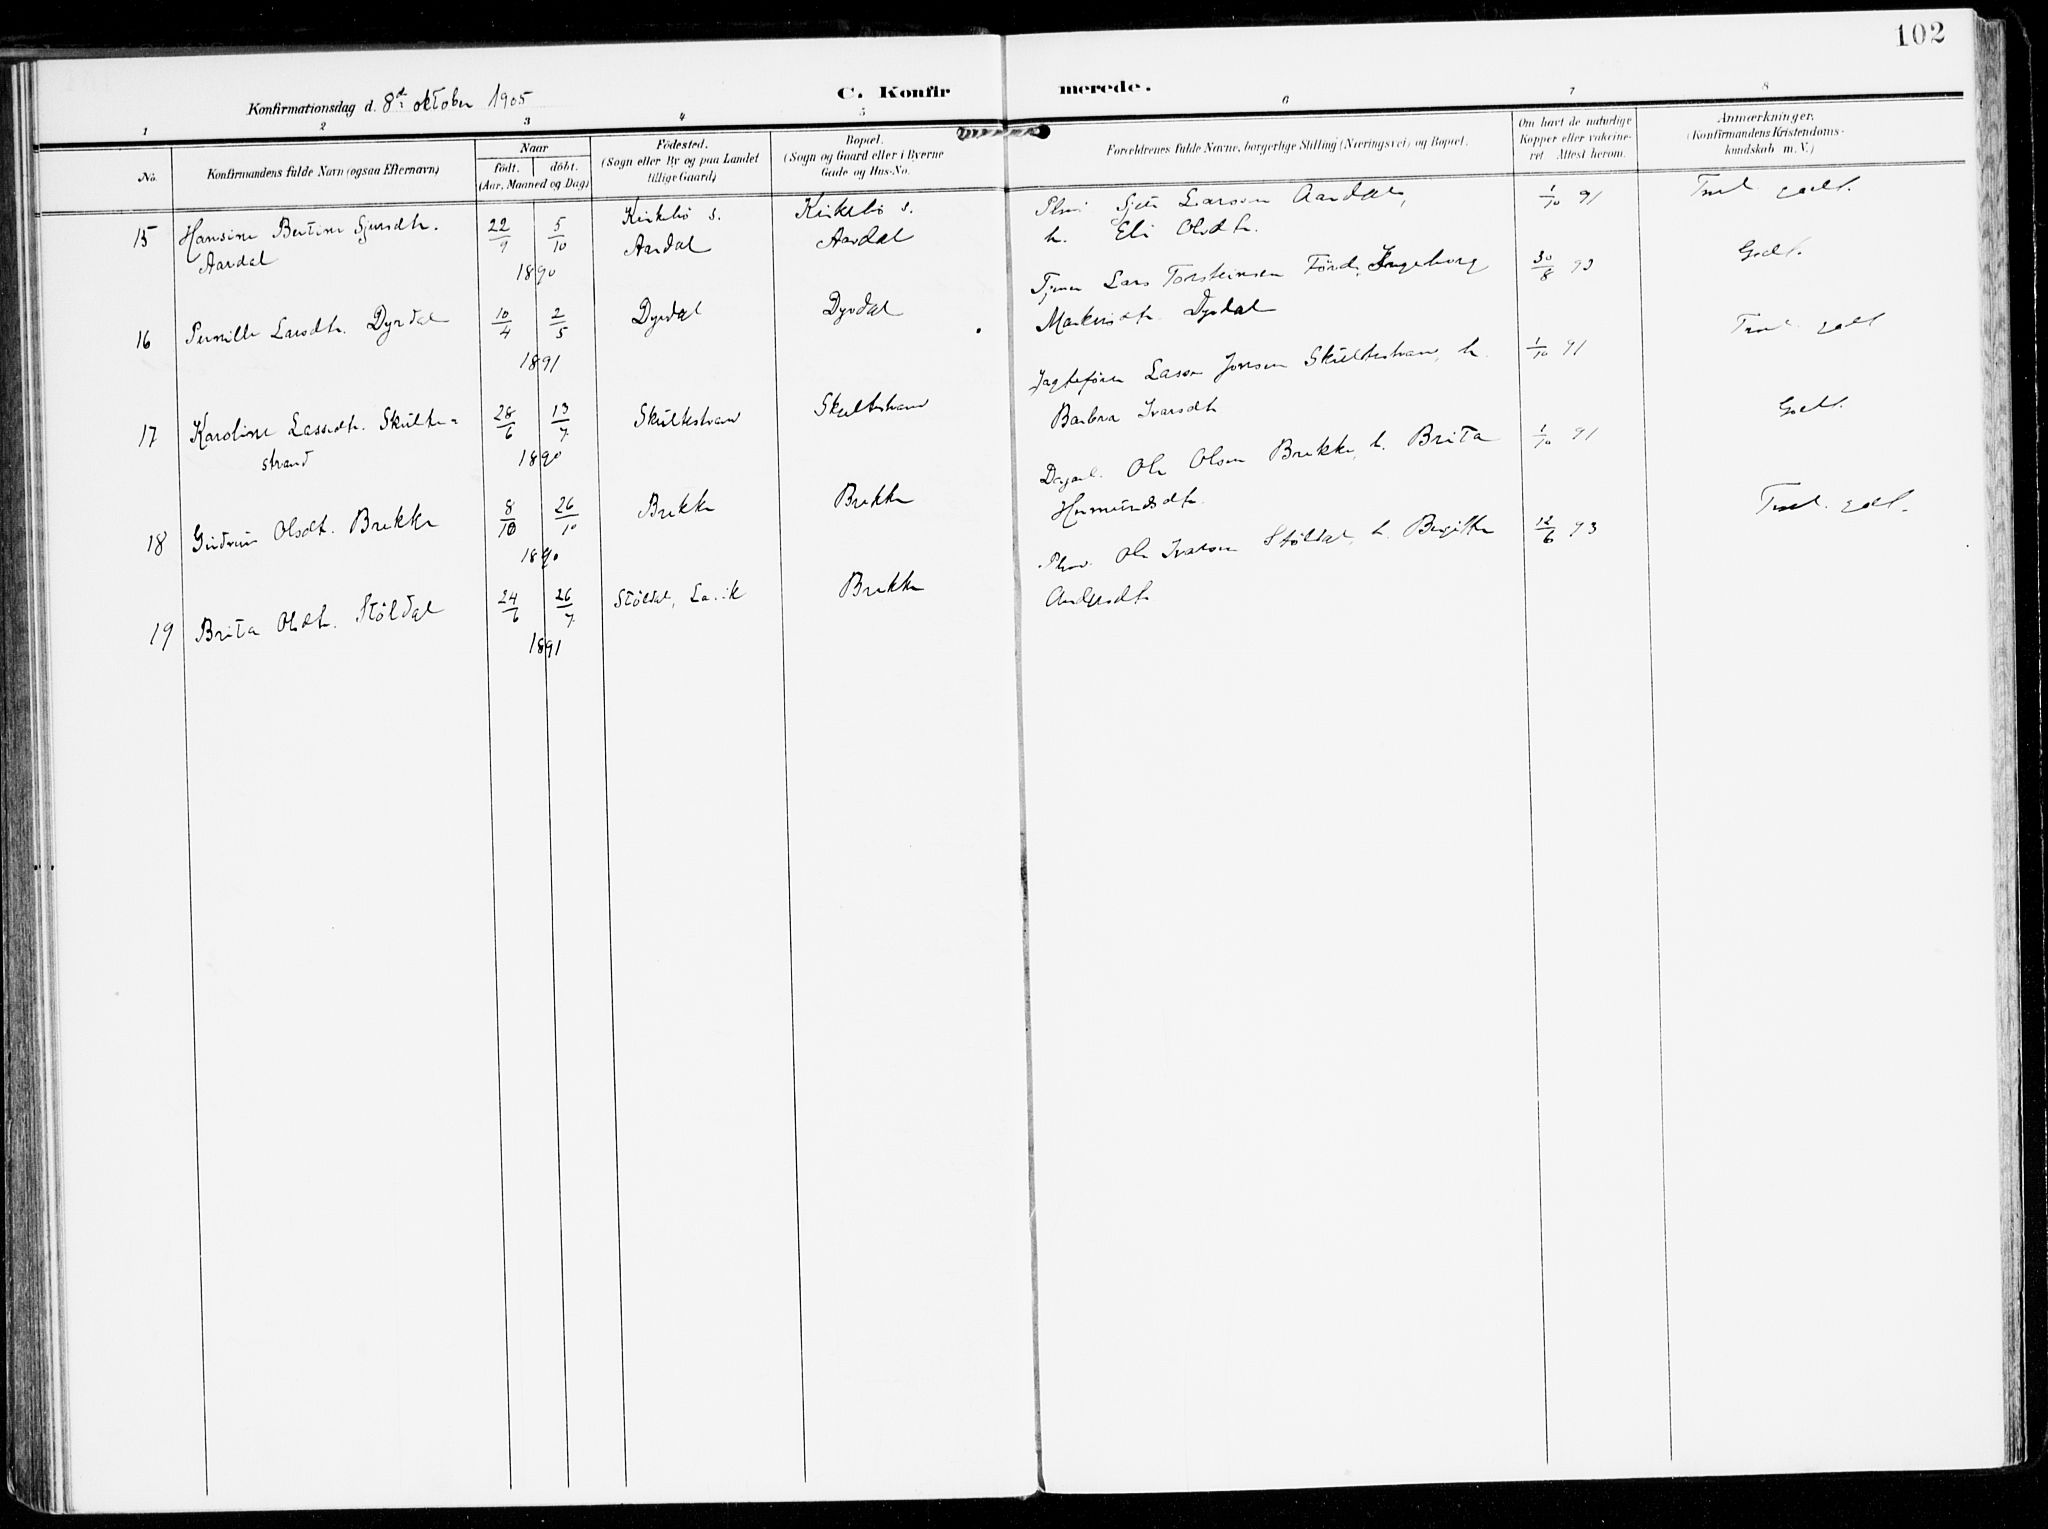 102
Konfirmationsdag d. 8de oktober 1905
C. Konfirmerede.
1 2 3 4 5 6 7 8
No.
Konfirmandens fulde Navn (ogsaa Efternavn)
Naar
födt. döbt.
(Aar, Maaned og Dag)
Födested.
(Sogn eller By og paa Landet
tillige Gaard)
Bopæl.
(Sogn og Gaard eller i Byerne
Gade og Hus-No.
Forældrenes fulde Navne, borgerlige Stilling (Næringsvei) og Bopæl.
Om havt de naturlige
Kopper eller vakcine-
ret Attest herom.
Anmærkninger,
(Konfirmandens Kristendoms-
kundskab m. V.)
15 Hansine Bertine Sjursdtr. 22/9 5/10 Kirkebö s. Kirkebö s. Larsen Aardal, 1/10 91 godt.
Aardal 1890 Aardal Aardal h. Eli Olsdtr.
16 Pernille Larsdtr. Dyrdal 10/4 2/5 Dyrdal Dyrdal Lars Torsteinsen Förde, Ingeborg 30/8 93 Godt.
1891 Markusdtr. Dyrdal
17 Karoline Lassedtr. Skulte- 28/6 13/7 Skultestrand Skultestrand Jagtefører Lasse Jonsen Skultestrand, h. 1/10 91 godt
strand 1890 Barbra Ivarsdtr.
18 Gudrun Olsdtr. Brekke 8/10 26/10 Brekke Brekke Ole Olsen Brekke, h. Brita 1/10 91 Godt.
1890 Hermundsdtr.
19 Brita Olsdtr. Stöldal 24/6 26/7 Stöldal, Lavik Brekke Ole Ivarsen Stöldal, h. Birgitte 12/6 93 godt.
1891 Andersdtr.